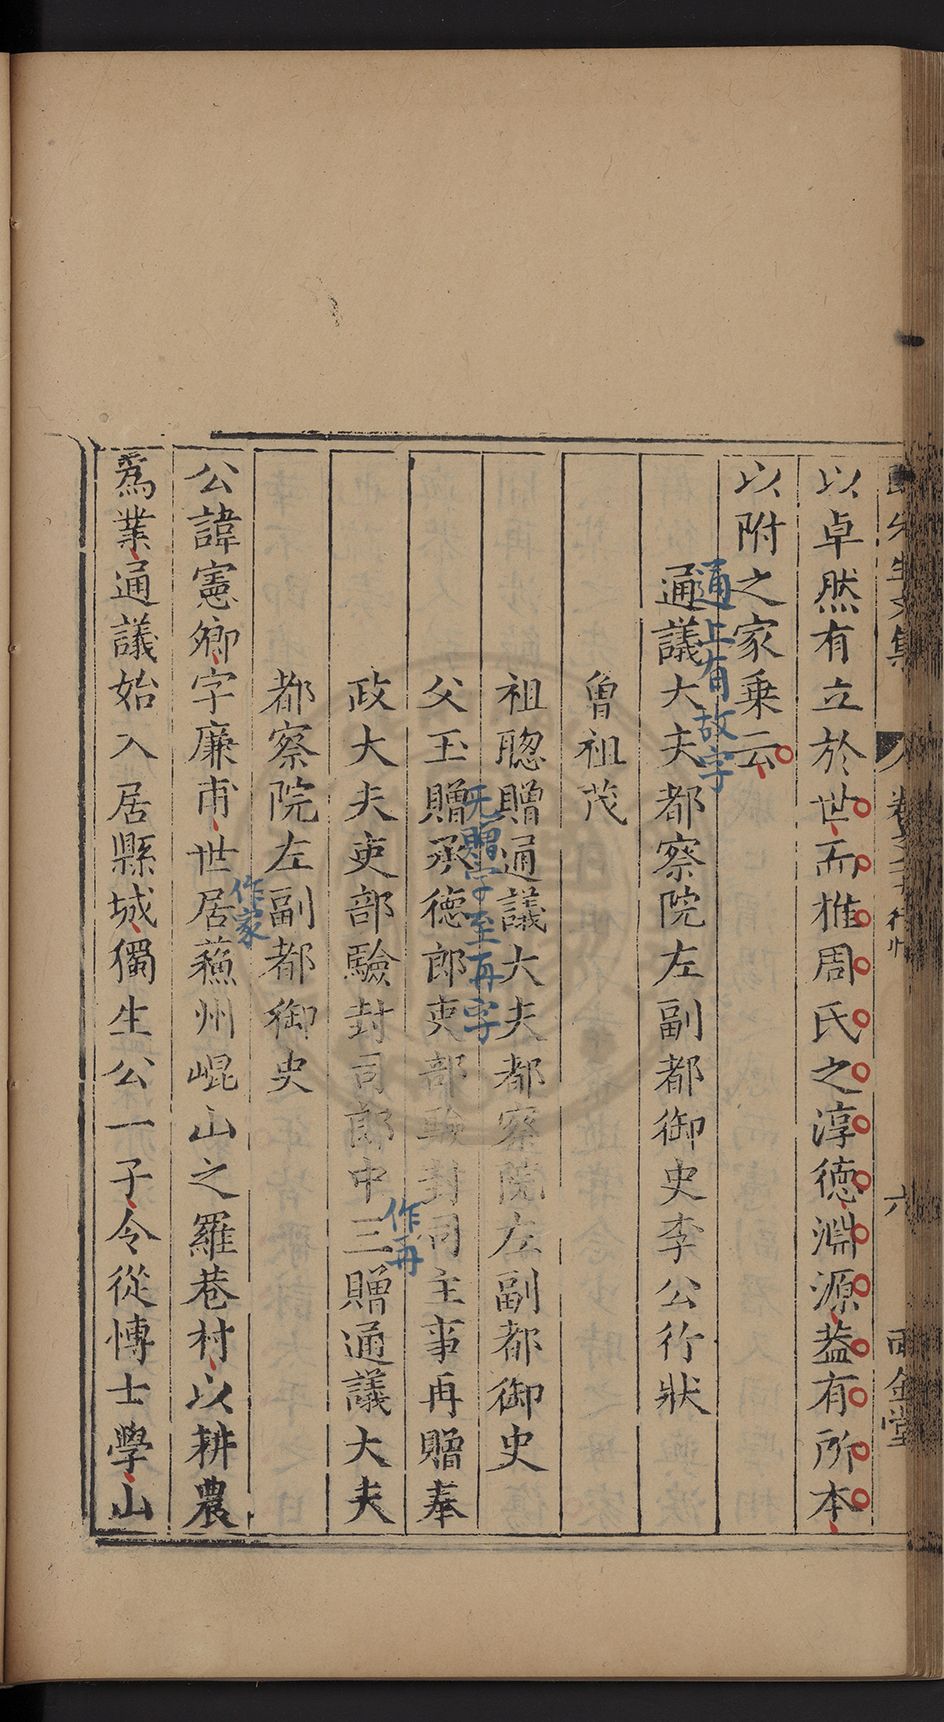 先生文集 卷之 行狀 六 雨金堂
以卓然有立於世而推周氏之淳德淵源益有所本
以附之家乗云
通上有故字
通議大夫都察院左副都御史李公行狀
曾祖茂
祖聰贈通議大夫都察院左副都御史
无贈字至再字
父玉贈承德郎吏部驗封司主事再贈奉
作再
政大夫吏部驗封司郎中三贈通議大夫
都察院左副都御史
作家
公諱憲卿字廉甫世居蘓州崐山之羅巷村以耕農
爲業通議始入居縣城獨生公一子令從博士學山